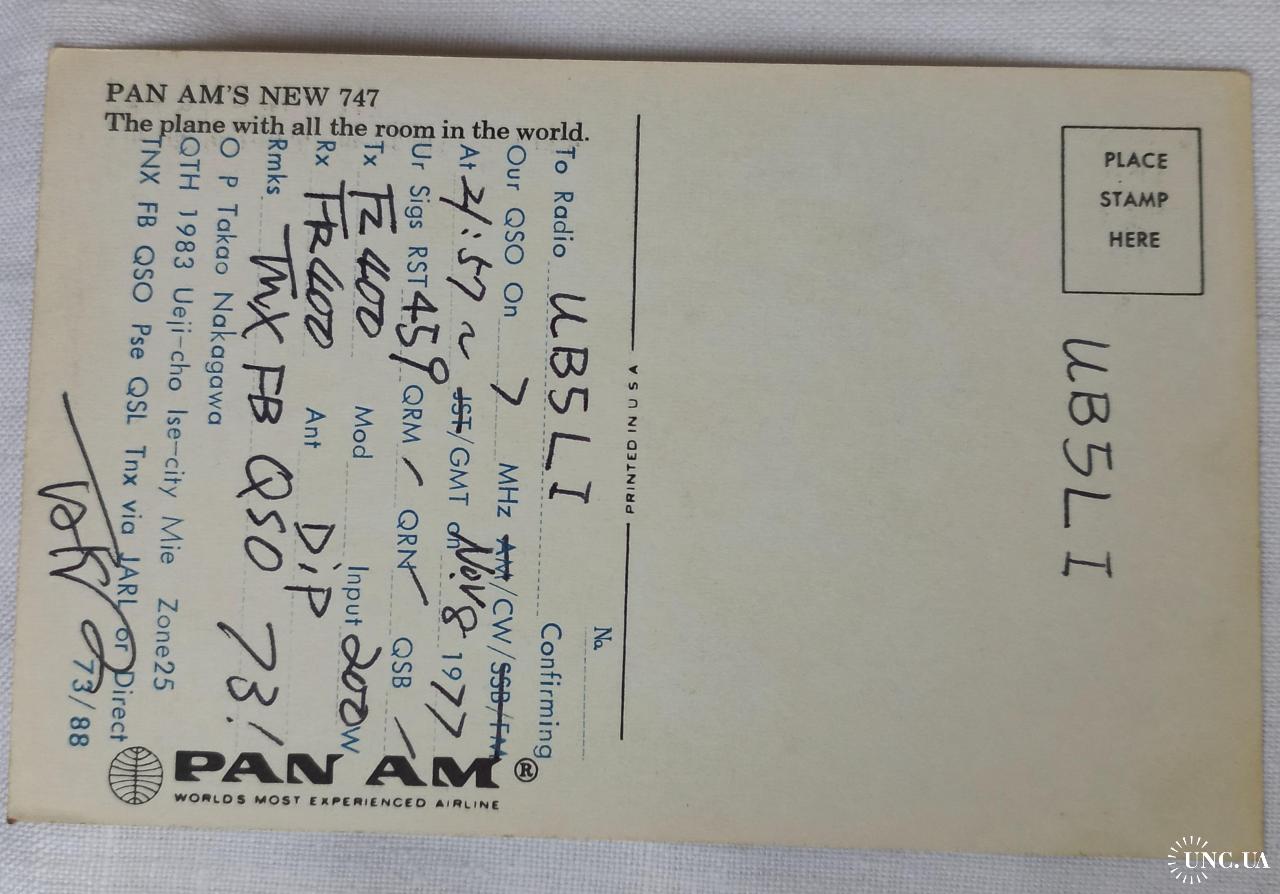 PAN AM'S NEW 747
The plane with all the room in the world.
PLACE
STAMP
HERE
UB5LI
PRINTED IN U S A
No
To Radio UB5LI Confirming
Our QSO On 7 MHz AM/CW/SSB/FM
At 21:57 JST/GMT on Nov 8 1977
Ur Sigs RST 459 QRM QRN QSB
Tx Mod Input 200W
Rx Ant DiP
Rmks TNX FB QSO 73!
O P Takao Nakagawa
QTH 1983 Ueji-cho Ise-city Mie Zone25
TNX FB QSO Pse QSL Tnx via JARL or Direct
73/88
PAN AM®
WORLDS MOST EXPERIENCED AIRLINE
UNC.UA